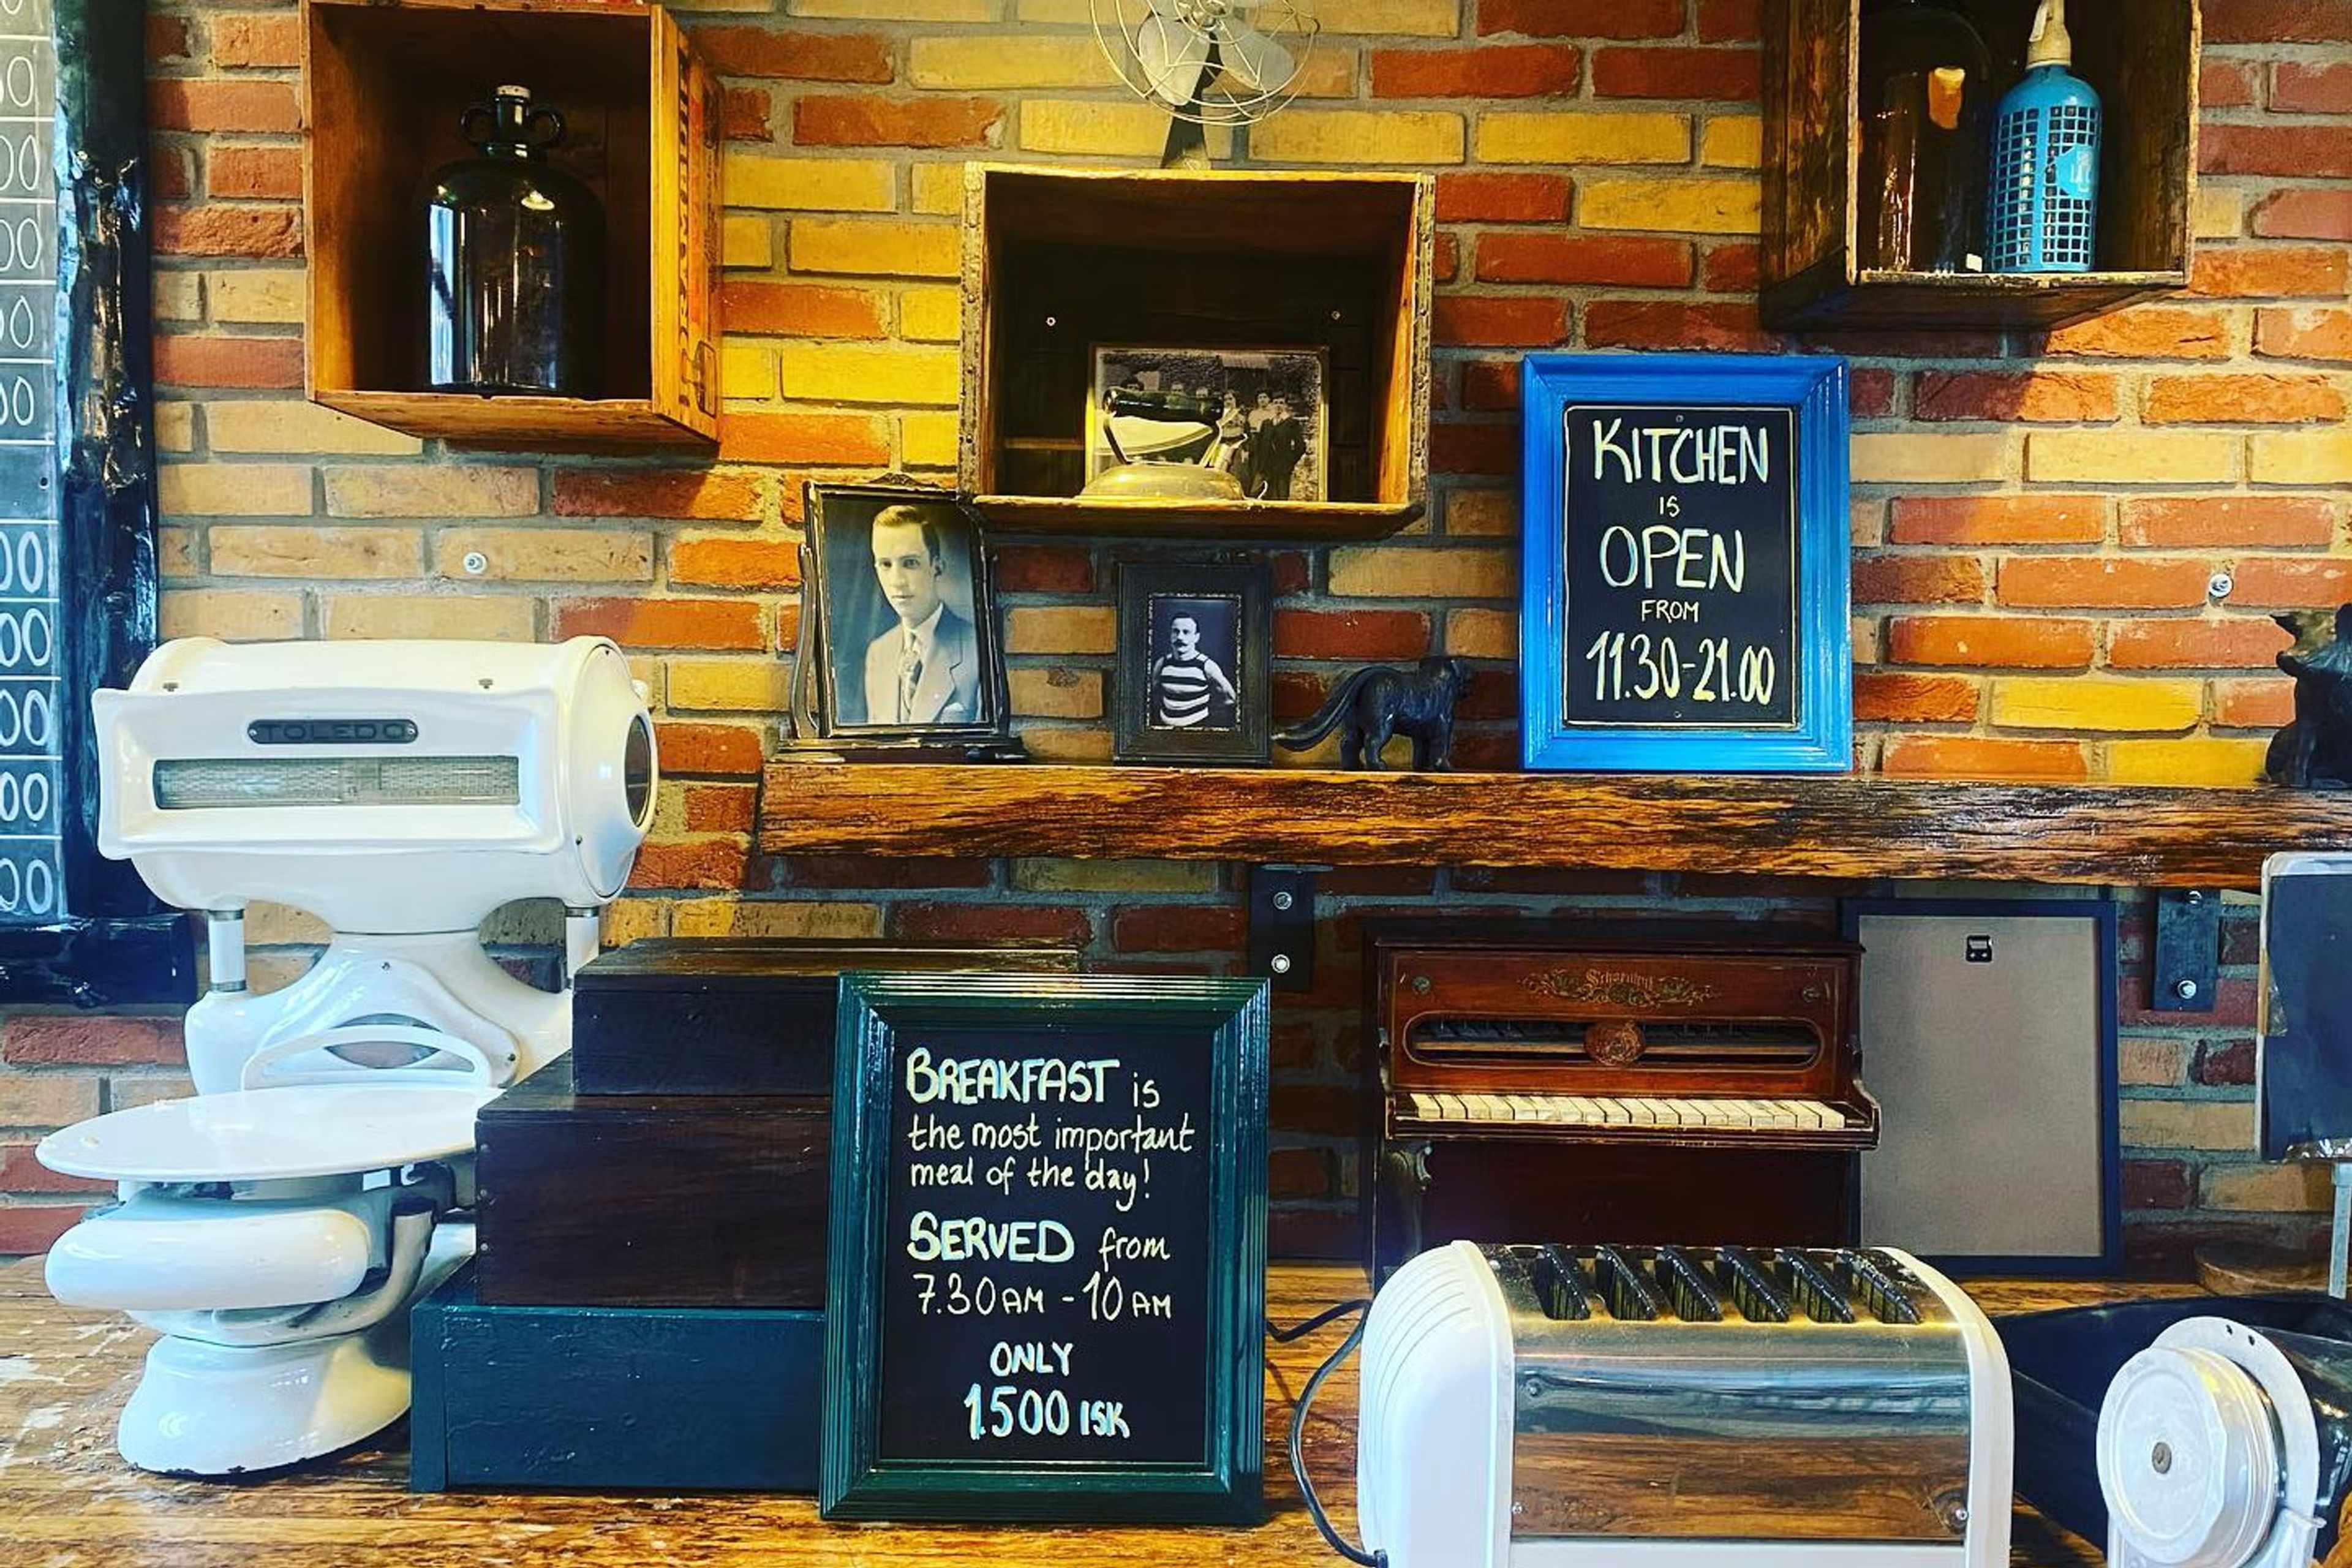 KITCHEN
IS
OPEN
FROM
11.30-21.00
TOLEDO
Schoenhut
BREAKFAST is
the most important
meal of the day!
SERVED from
7.30AM - 10AM
ONLY
1.500 ISK
00
00
00
00
00